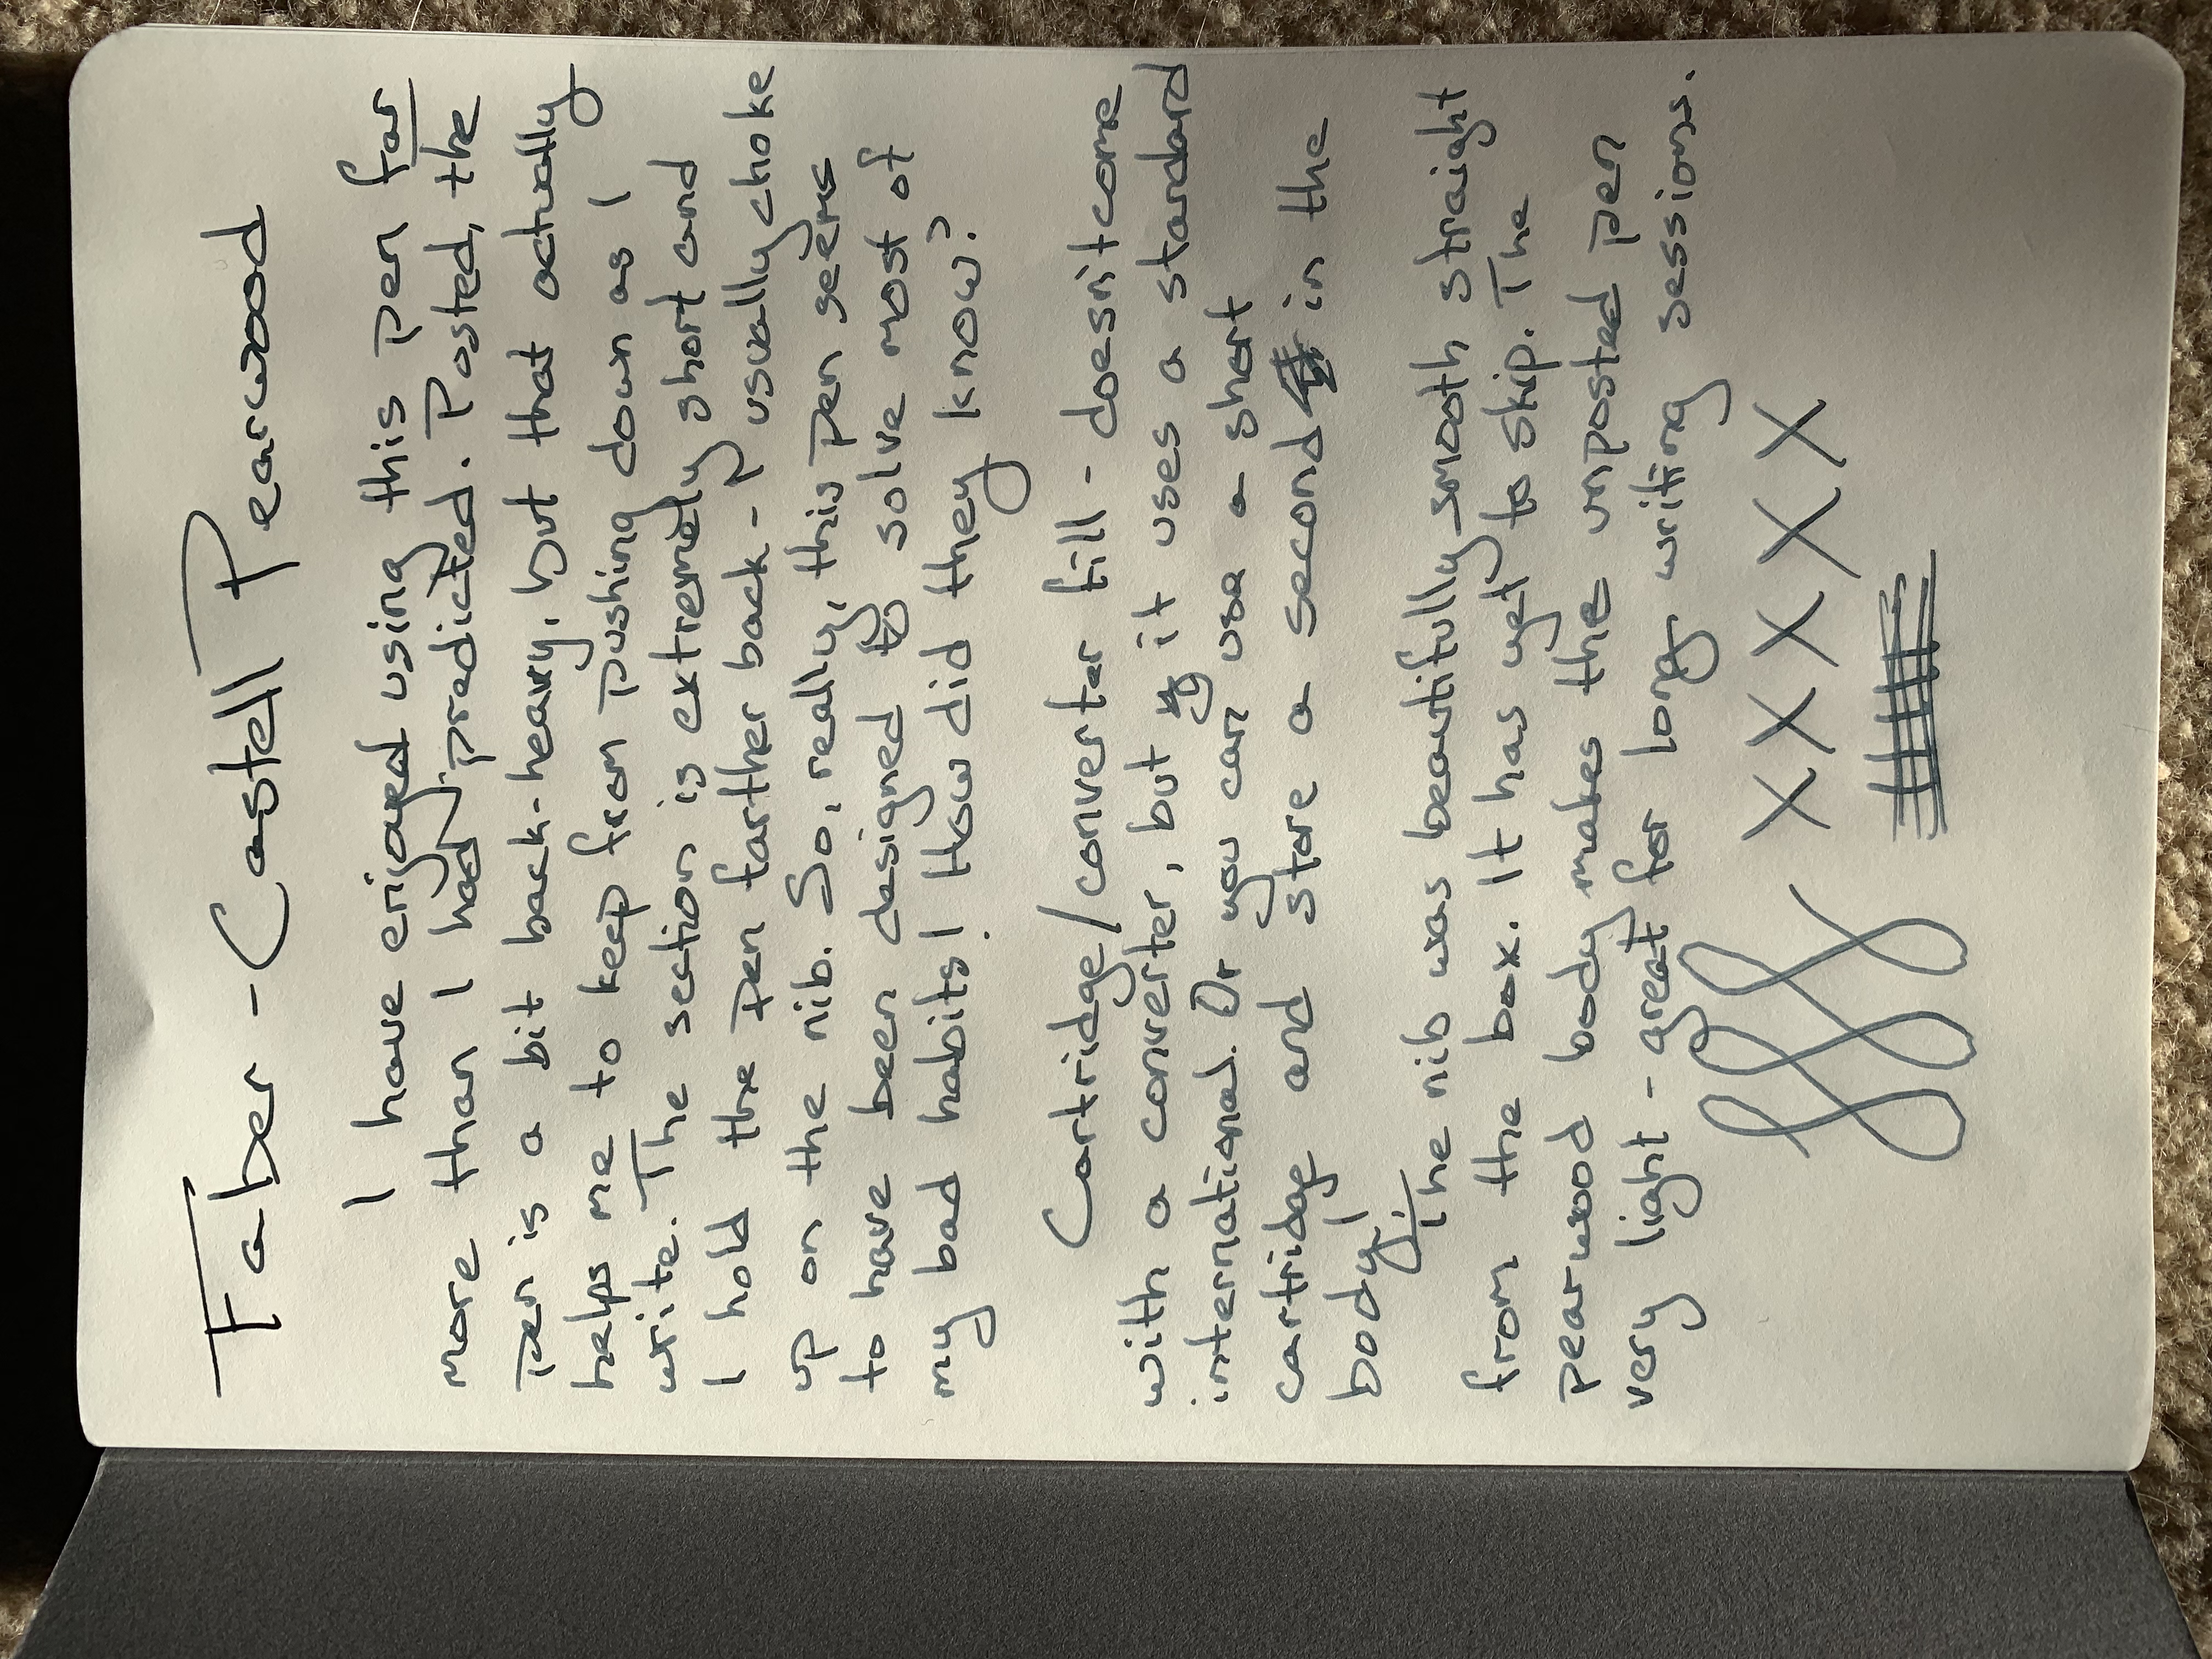 Faber-Castell Pearwood
I have enjoyed using this pen far
more than I had predicted. Posted, the
pen is a bit back-heavy, but that actually
helps me to keep from pushing down as I
write. The section is extremely short and
I hold the pen farther back - usually choke
up on the nib. So, really, this pen seems
to have been designed to solve most of
my bad habits! How did they know?
Cartridge/converter fill - doesn't come
with a converter, but it uses a standard
international. Or you can use a short
cartridge and store a second in the
body!
The nib was beautifully smooth straight
from the box. It has yet to skip. The
pearwood body makes the unposted pen
very light - great for long writing sessions.
X X X X X